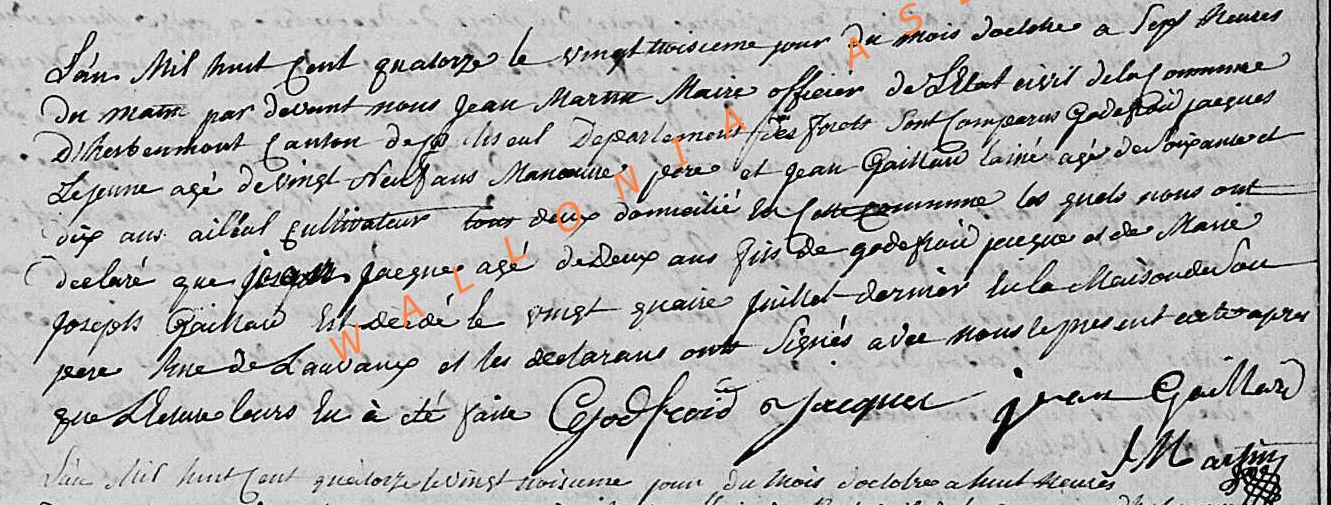 L'an Mil huit Cent quatorze le vingt troisieme jour du mois d'octobre a Sept heures
du matin par devant nous Jean Martin Maire officier de L'Etat civil de la Commune
D'herbeumont Canton de paliseul Departement des forets Sont Comparus Godefroid jacques
Lejeune agé de vingt Neuf ans Manouvrie pere et Jean Gaillard lainé agé de Soixante et
dix ans aileul Cultivateur tous deux domicilié En Cette Commune les quels nous ont
declaré que joseph jacque agé de Deux ans fils de godefroid jacque et de Marie
Joseph Gaillard Est decedé le vingt quatre Juillet dernier En la Maison de Son
pere Rue de Lauvaux et les declarans ont Signés avec nous le present acte apres
que Lecture leurs En à eté faite Godfroid Jacques jean Gaillard
J Martin
L'an Mil huit Cent quatorze le vingt troisieme jour du Mois d'octobre a huit heures
WALLONIA AS